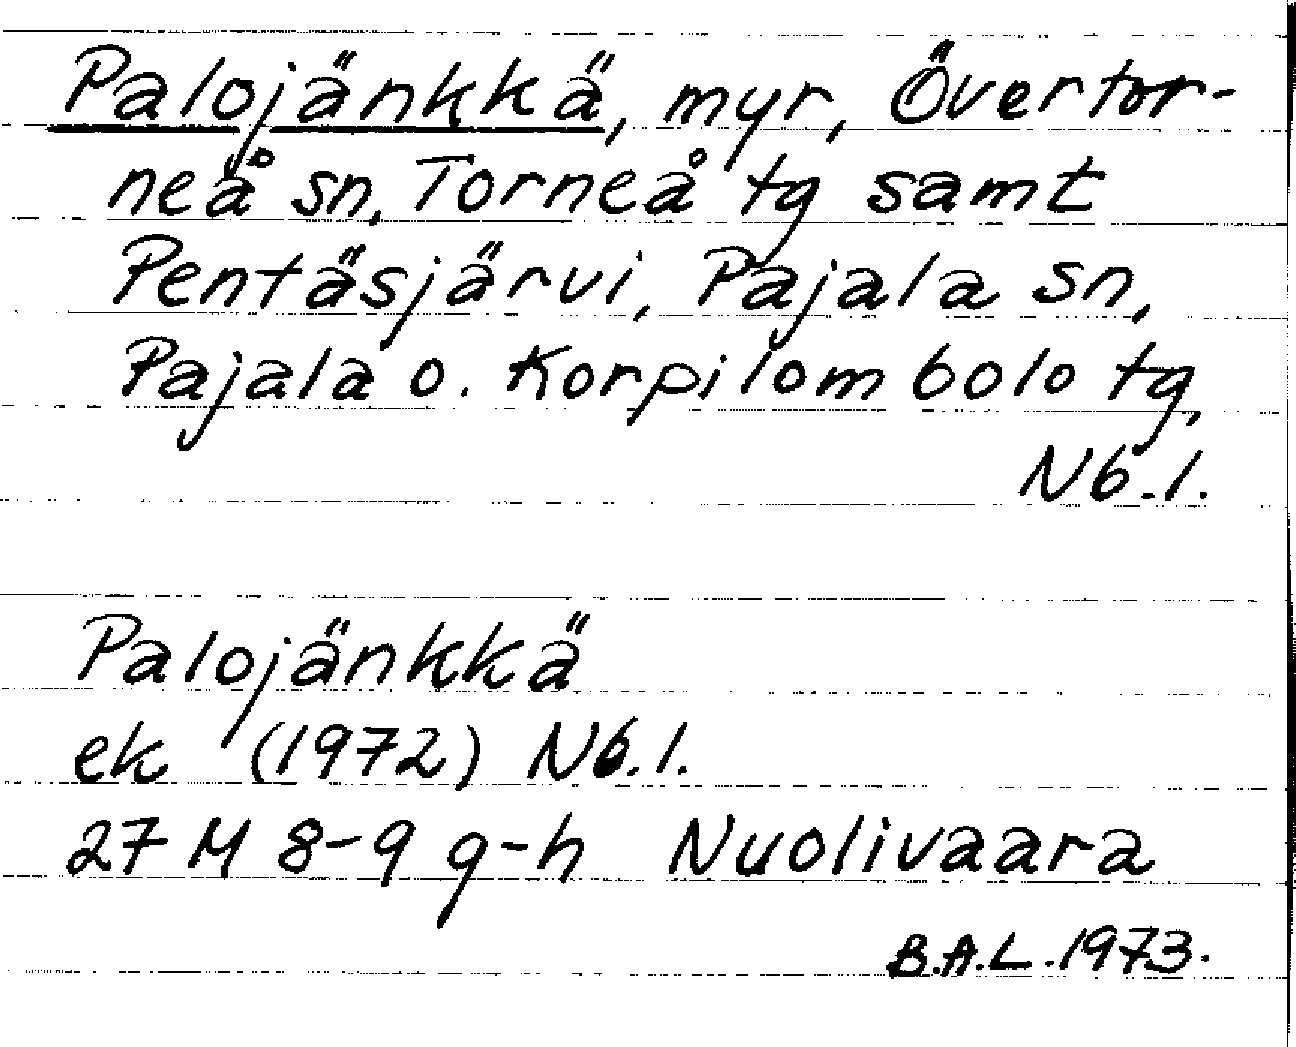 Palojänkkä, myr, Övertor-
neå sn, Torneå tg samt
Pentäsjärvi, Pajala sn,
Pajala o. Korpilombolo tg,
Nb.l.
Palojänkkä
ek (1972) Nb.l.
27 M 8-9 g-h Nuolivaara
B.A.L. 1973.